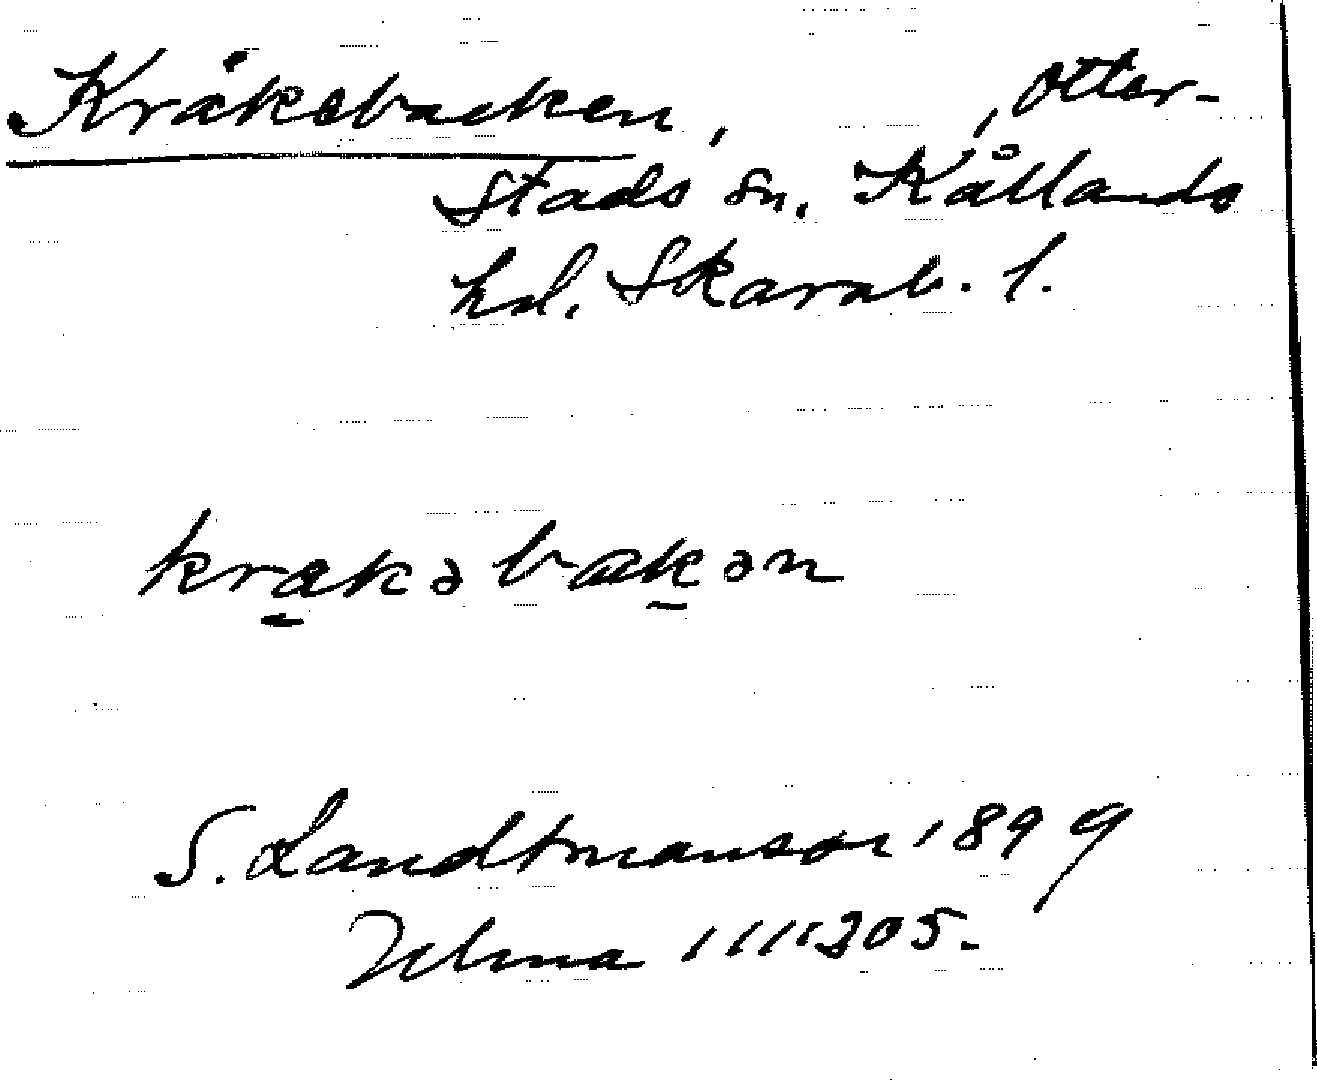 Kråkebacken, , Otter-
stads sn. Kållands
hd. Skarab. l.
krakəbakən
S. Landtmanson 1899